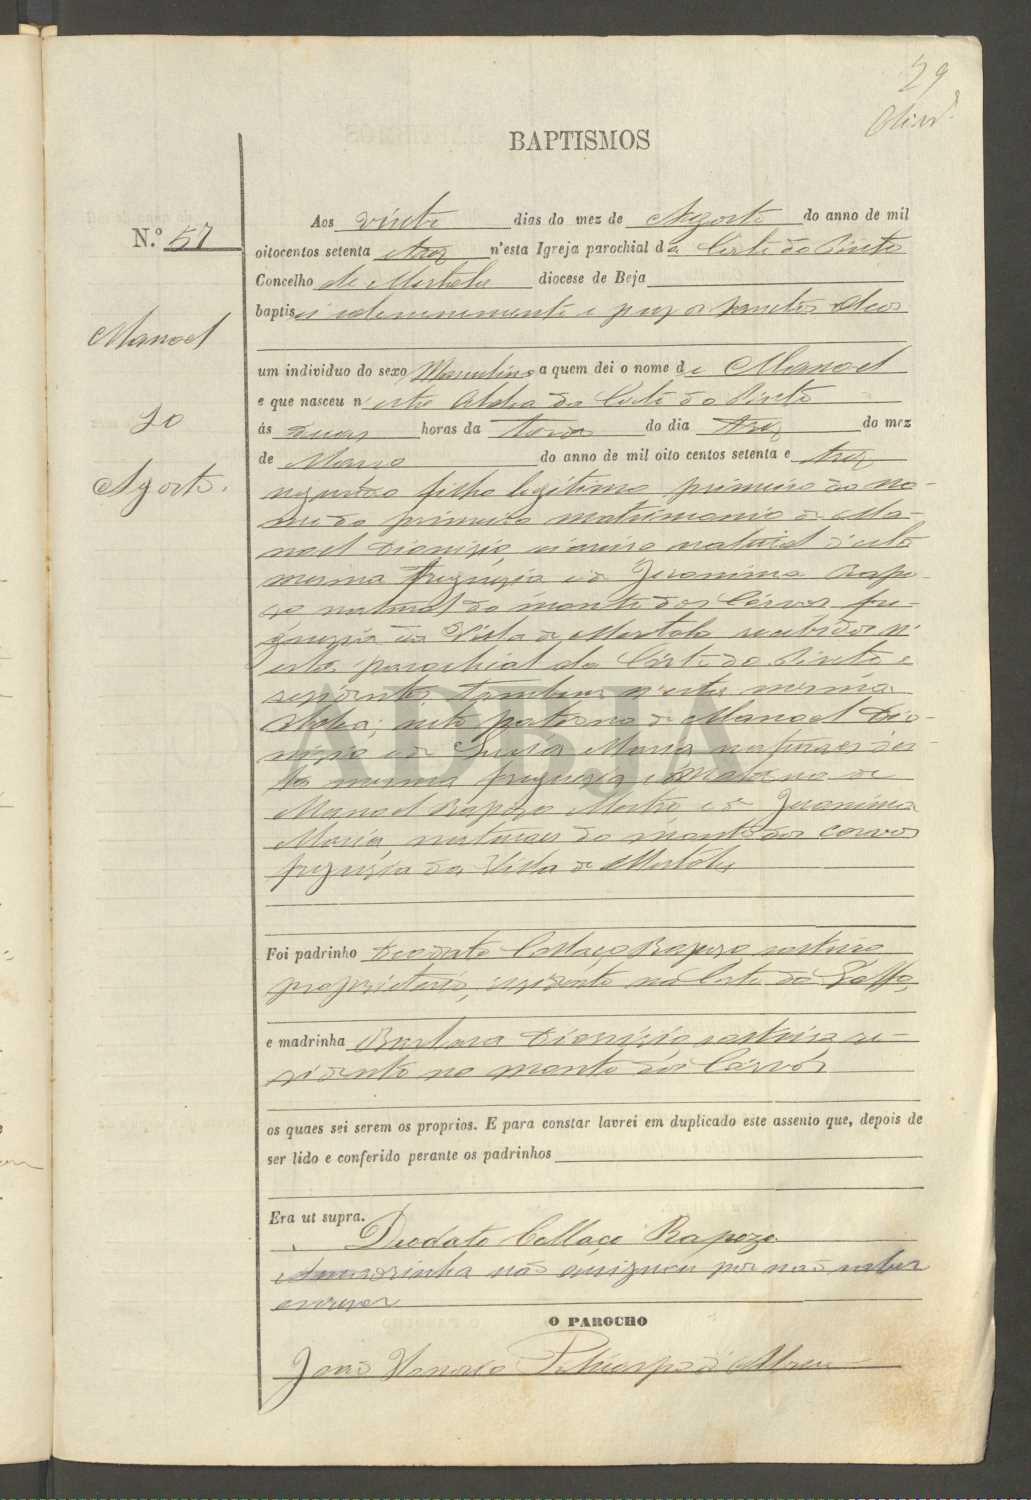 29
BAPTISMOS
N.º 57
Manoel
20
Agosto.
Aos vinte dias do mez de Agosto do anno de mil
oitocentos setenta e trez n'esta Igreja parochial da Corte do Pinto
Concelho de Mertola diocese de Beja
baptisei solemnemente e puz os sanctos oleos
um individuo do sexo Masculino a quem dei o nome de Manoel
e que nasceu n'esta Aldea da Corte do Pinto
ás duas horas da tarde do dia trez do mez
de Março do anno de mil oito centos setenta e trez
segundo filho legitimo primeiro do no-
me do primeiro matrimonio de Ma-
noel Dionizio, natural d'esta
mesma freguezia e de Jeronima Rapo-
zo natural do monte dos Córvos fre-
guezia da Villa de Mertola recebidos n'
esta parochial da Côrte do Pinto e
rezidentes tambem n'esta mesma
Aldea; neto paterno de Manoel Dio-
nizio e de Luzia Maria naturaes des-
ta mesma freguezia e Materno de
Manoel Rapozo Mestre e de Jeronima
Maria, naturaes do monte dos corvos
freguezia da Villa de Mertola
Foi padrinho Deodato Collaço Rapozo solteiro
proprietario, rezidente na Corte do
e madrinha Barbara Dionizia solteira re-
zidente no monte dos Córvos
os quaes sei serem os proprios. E para constar lavrei em duplicado este assento que, depois de
ser lido e conferido perante os padrinhos
Era ut supra.
Deodato Collaço Rapozo
A madrinha não assignou por não saber
escrever
O PAROCHO
ADBJA